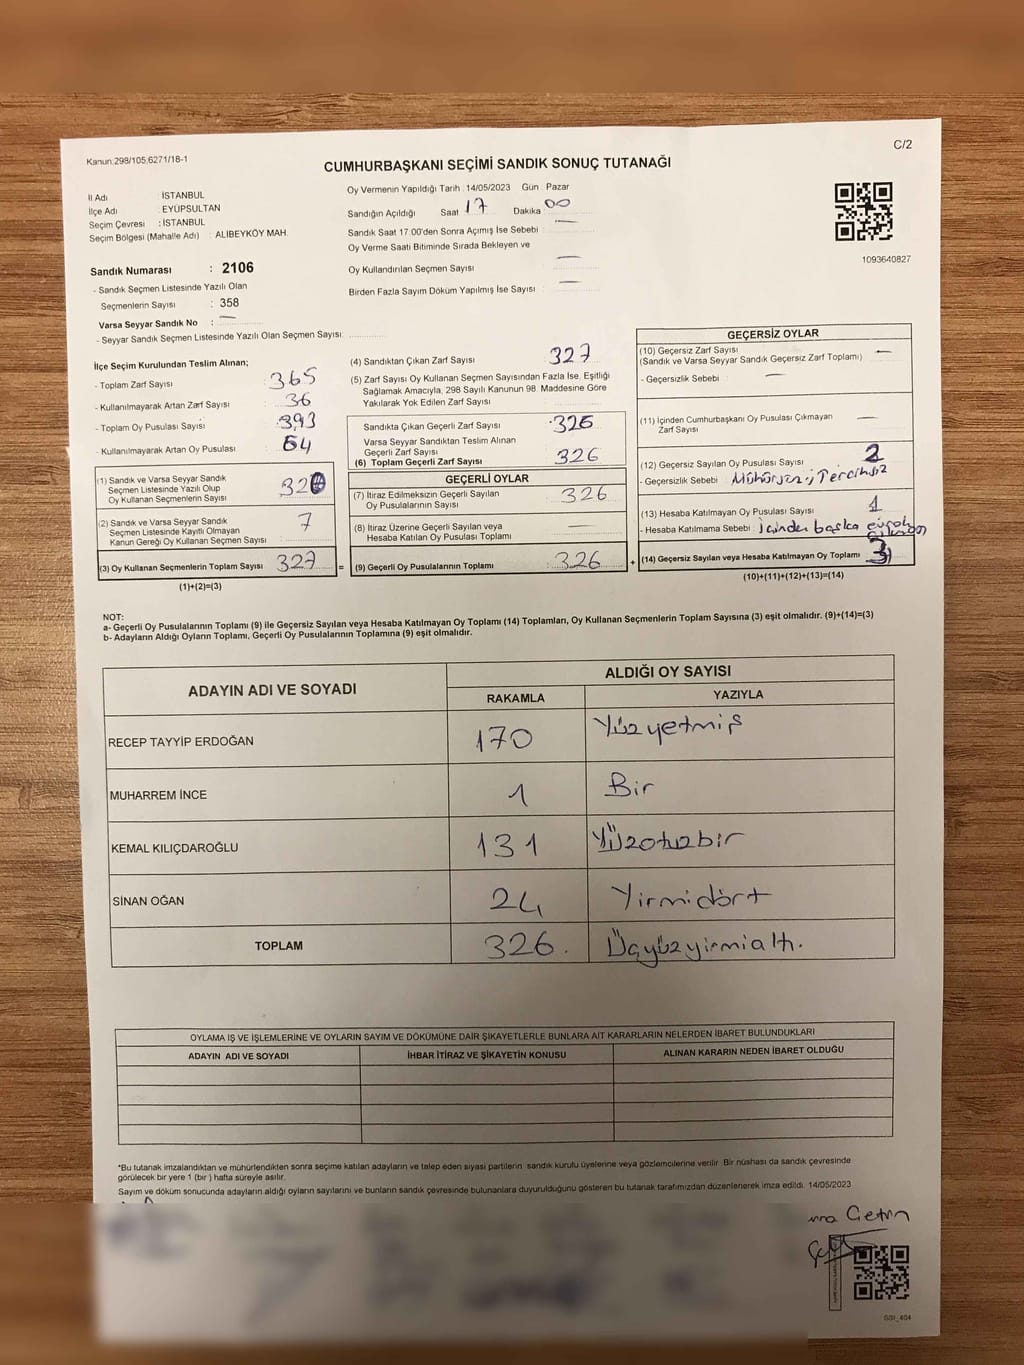 Kanun:298/105,6271/18-1
C/2
CUMHURBAŞKANI SEÇİMİ SANDIK SONUÇ TUTANAĞI
İl Adı : İSTANBUL
İlçe Adı : EYÜPSULTAN
Seçim Çevresi : İSTANBUL
Seçim Bölgesi (Mahalle Adı) : ALİBEYKÖY MAH.
Oy Vermenin Yapıldığı Tarih : 14/05/2023 Gün : Pazar
Sandığın Açıldığı Saat 17 Dakika 00
Sandık Saat 17.00'den Sonra Açımış İse Sebebi : —
Oy Verme Saati Bitiminde Sırada Bekleyen ve
Oy Kullandırılan Seçmen Sayısı —
Birden Fazla Sayım Döküm Yapılmış İse Sayısı : —
1093640827
Sandık Numarası : 2106
- Sandık Seçmen Listesinde Yazılı Olan
Seçmenlerin Sayısı : 358
Varsa Seyyar Sandık No : —
- Seyyar Sandık Seçmen Listesinde Yazılı Olan Seçmen Sayısı:
İlçe Seçim Kurulundan Teslim Alınan;
- Toplam Zarf Sayısı : 365
- Kullanılmayarak Artan Zarf Sayısı : 36
- Toplam Oy Pusulası Sayısı : 393
- Kullanılmayarak Artan Oy Pusulası : 64
(1) Sandık ve Varsa Seyyar Sandık
Seçmen Listesinde Yazılı Olup
Oy Kullanan Seçmenlerin Sayısı : 320
(2) Sandık ve Varsa Seyyar Sandık
Seçmen Listesinde Kayıtlı Olmayan
Kanun Gereği Oy Kullanan Seçmen Sayısı : 7
(3) Oy Kullanan Seçmenlerin Toplam Sayısı : 327
(1)+(2)=(3)
(4) Sandıktan Çıkan Zarf Sayısı : 327
(5) Zarf Sayısı Oy Kullanan Seçmen Sayısından Fazla İse, Eşitliği
Sağlamak Amacıyla, 298 Sayılı Kanunun 98. Maddesine Göre
Yakılarak Yok Edilen Zarf Sayısı
Sandıkta Çıkan Geçerli Zarf Sayısı : 326
Varsa Seyyar Sandıktan Teslim Alınan
Geçerli Zarf Sayısı
(6) Toplam Geçerli Zarf Sayısı : 326
GEÇERLİ OYLAR
(7) İtiraz Edilmeksizin Geçerli Sayılan
Oy Pusulalarının Sayısı : 326
(8) İtiraz Üzerine Geçerli Sayılan veya
Hesaba Katılan Oy Pusulası Toplamı : —
= (9) Geçerli Oy Pusulalarının Toplamı : 326 +
GEÇERSİZ OYLAR
(10) Geçersiz Zarf Sayısı
(Sandık ve Varsa Seyyar Sandık Geçersiz Zarf Toplamı) —
- Geçersizlik Sebebi : —
(11) İçinden Cumhurbaşkanı Oy Pusulası Çıkmayan
Zarf Sayısı —
(12) Geçersiz Sayılan Oy Pusulası Sayısı : 2
- Geçersizlik Sebebi :
(13) Hesaba Katılmayan Oy Pusulası Sayısı : 1
- Hesaba Katılmama Sebebi : İçinden başka
(14) Geçersiz Sayılan veya Hesaba Katılmayan Oy Toplamı : 3
(10)+(11)+(12)+(13)=(14)
NOT:
a- Geçerli Oy Pusulalarının Toplamı (9) ile Geçersiz Sayılan veya Hesaba Katılmayan Oy Toplamı (14) Toplamları, Oy Kullanan Seçmenlerin Toplam Sayısına (3) eşit olmalıdır. (9)+(14)=(3)
b- Adayların Aldığı Oyların Toplamı, Geçerli Oy Pusulalarının Toplamına (9) eşit olmalıdır.
ADAYIN ADI VE SOYADI ALDIĞI OY SAYISI
RAKAMLA YAZIYLA
RECEP TAYYİP ERDOĞAN 170 Yüzyetmiş
MUHARREM İNCE 1 Bir
KEMAL KILIÇDAROĞLU 131 Yüzotuzbir
SİNAN OĞAN 24 Yirmidört
TOPLAM 326. Üçyüzyirmialtı.
OYLAMA İŞ VE İŞLEMLERİNE VE OYLARIN SAYIM VE DÖKÜMÜNE DAİR ŞİKAYETLERLE BUNLARA AİT KARARLARIN NELERDEN İBARET BULUNDUKLARI
ADAYIN ADI VE SOYADI İHBAR İTİRAZ VE ŞİKAYETİN KONUSU ALINAN KARARIN NEDEN İBARET OLDUĞU
*Bu tutanak imzalandıktan ve mühürlendikten sonra seçime katılan adayların ve talep eden siyasi partilerin sandık kurulu üyelerine veya gözlemcilerine verilir. Bir nüshası da sandık çevresinde
görülecek bir yere 1 (bir) hafta süreyle asılır.
Sayım ve döküm sonucunda adayların aldığı oyların sayılarını ve bunların sandık çevresinde bulunanlara duyurulduğunu gösteren bu tutanak tarafımızdan düzenlenerek imza edildi. 14/05/2023
Çetin